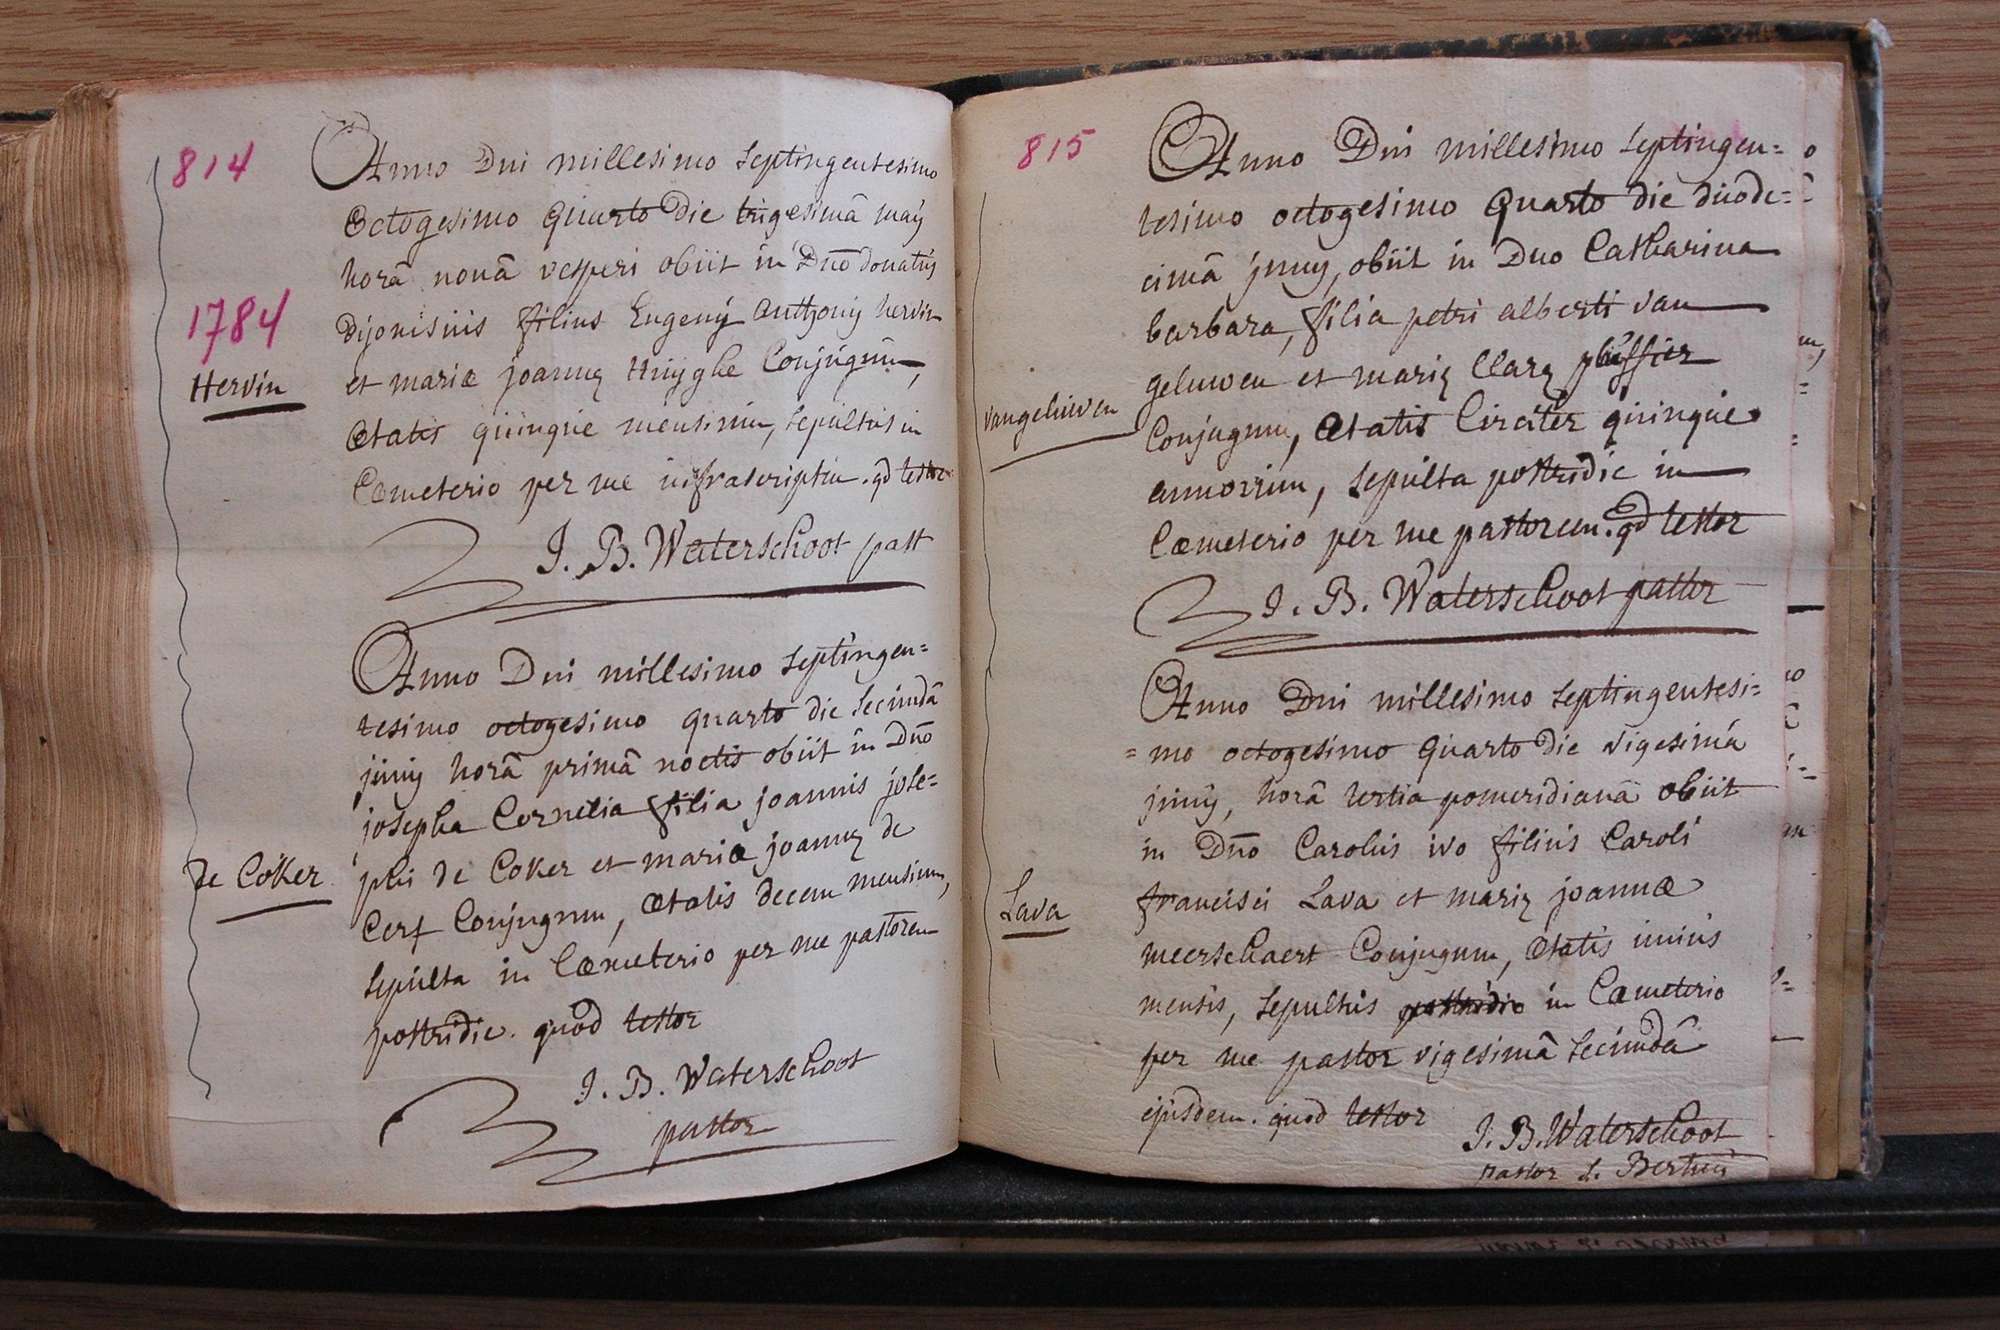 814
Anno Dni millesimo Septingentesimo
octogesimo quarto die trigesimâ maÿ
horâ nonâ vesperi obiit in Dno donatus
1784
Dijonisius filius Eugenÿ Anthonÿ hervin
Hervin
et mariæ joannæ Huÿghe Conjugum,
Ætatis quinque mensium, sepultus in
Cœmeterio per me infrascriptu. qd testor
J. B. Waterschoot past
Anno Dni millesimo Septingen=
tesimo octogesimo quarto die secundâ
junÿ horâ primâ noctis obiit in Dno
josepha Cornelia filia joannis jose=
phi de Coker et mariæ joannæ de
de Coker
Cerf Conjugum, Ætatis decem mensium,
sepulta in Cœmeterio per me pastorem
postridie. quod testor
J. B. Waterschoot
pastor
815
Anno Dni millesimo Septingen=
tesimo octogesimo quarto die duode=
cimâ junÿ, obiit in Dno Catharina
barbara, filia petri alberti van
geluwen et mariæ Claræ
vangeluwen
Conjugum, Ætatis Circiter quinque
annorum, sepulta postridie in
Cœmeterio per me pastorem. qd testor
J. B. Waterschoot pastor
Anno Dni millesimo Septingentesi=
=mo octogesimo quarto die vigesimâ
junÿ, horâ tertia pomeridianâ obiit
in Dno Carolus ivo filius Caroli
francisci Lava et mariæ joannæ
Lava
meerschaert Conjugum, Ætatis unius
mensis, sepultus postridie in Cœmeterio
per me pastor vigesimâ secundâ
ejusdem. quod testor
J. B. Waterschoot
pastor S. Bertini